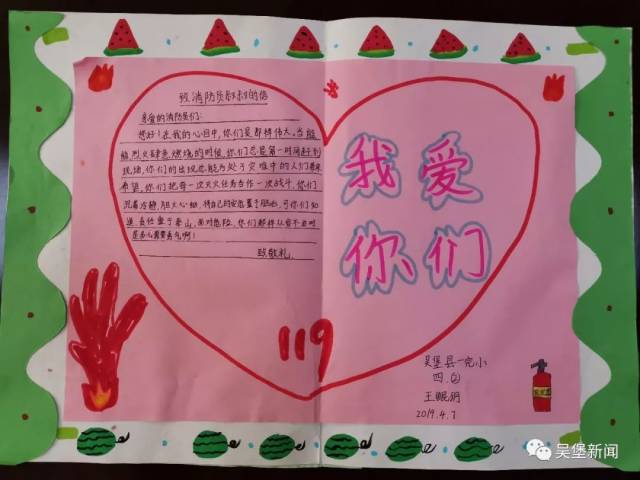 致消防员叔叔的信
亲爱的消防员们:
您好!在我的心目中,你们是那样伟大。当熊
熊烈火肆意燃烧的时候,你们总是第一时间赶到
现场,你们的出现总能为处于灾难中的人们带来
希望,你们把每一次灭火任务当作一次战斗,你们
沉着冷静,胆大心细,将自己的安危置于脑后,可你们知
道责任重于泰山,面对危险,你们那样从容不迫时
是多么需要勇气啊!
致敬礼
我爱
你们
119
吴堡县一完小
四.②
王
2019.4.7
吴堡新闻